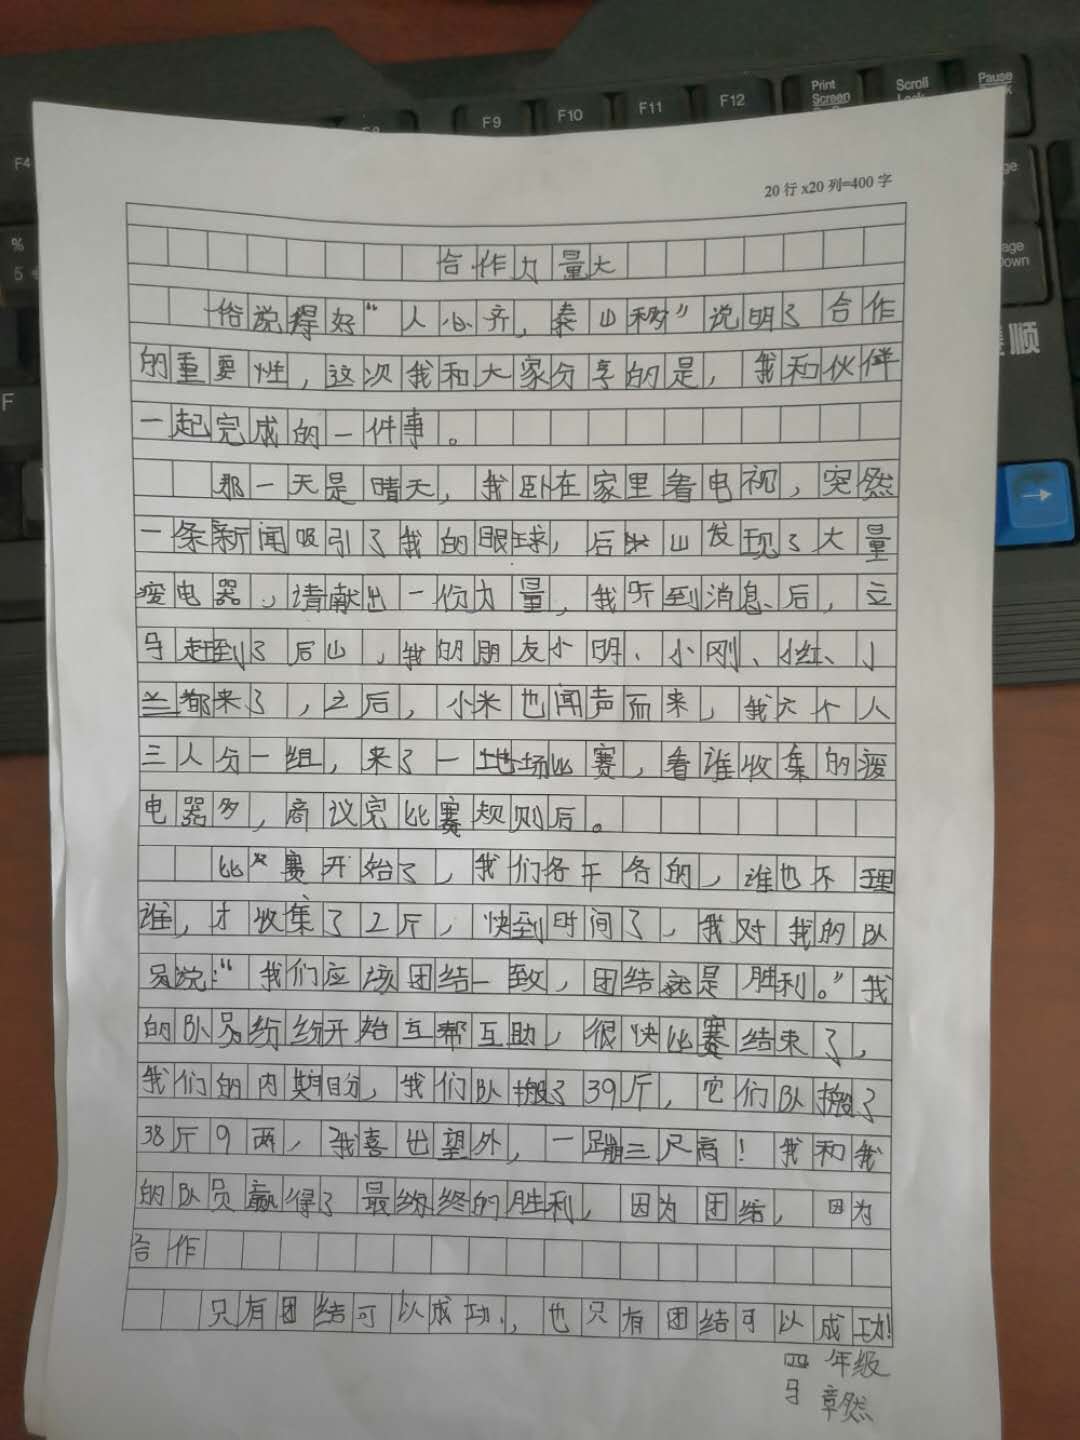 F4
F9
F10
F11
F12
Print
Screen
Scroll
Pause
%
5
F
20 行 x20 列=400 字
合作力量大
俗说得好“人心齐，泰山移”说明了合作
的重要性，这次我和大家分享的是，我和伙伴
一起完成的一件事。
那一天是晴天，我卧在家里看电视，突然
一条新闻吸引了我的眼球，后山发现了大量
电器，请献出一份力量，我听到消息后，立
马赶到了后山，我的朋友小明、小刚、小红、小
兰都来了，之后，小米也闻声而来，我六个人
三人分一组，来了一场比赛，看谁收集的
电器多，商议完比赛规则后。
比赛开始了，我们各干各的，谁也不理
谁，才收集了2斤，快到时间了，我对我的队
员说：“我们应该团结一致，团结就是胜利。”我
的队员纷纷开始互帮互助，很快比赛结束了，
我们的内期目分，我们队搬了39斤，它们队搬了
38斤9两，我喜出望外，一蹦三尺高！我和我
的队员赢得了最终的胜利，因为团结，因为
合作
只有团结可以成功，也只有团结可以成功!
四年级
马章然
顺